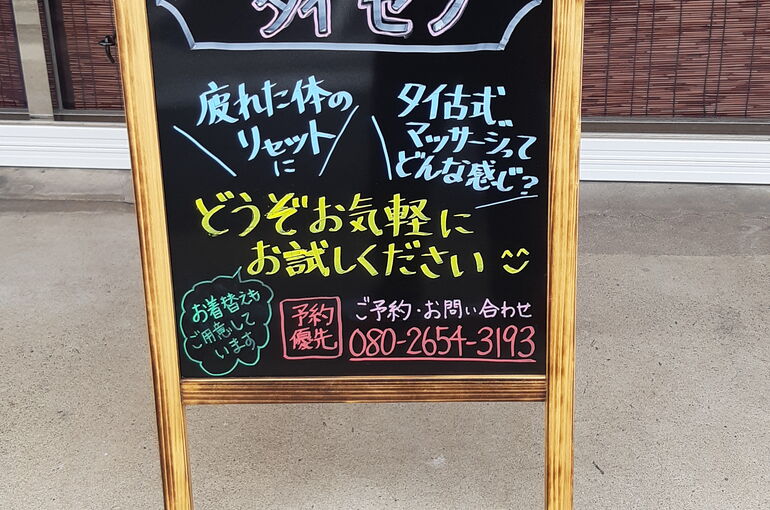 タイセン
疲れた体の
リセット
に
タイ古式
マッサージって
どんな感じ?
どうぞお気軽に
お試しください
お着替えも
ご用意して
います
予約
優先
ご予約・お問い合わせ
080-2654-3193